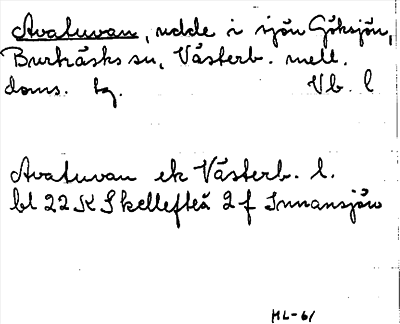 Avatuvan, udde i sjön Göksjön,
Burträsks sn, Västerb. mell.
doms. tg. Vb. l
Avatuvan ek Västerb. l.
bl 22 K Skellefteå 2 f Innansjön
ML-61